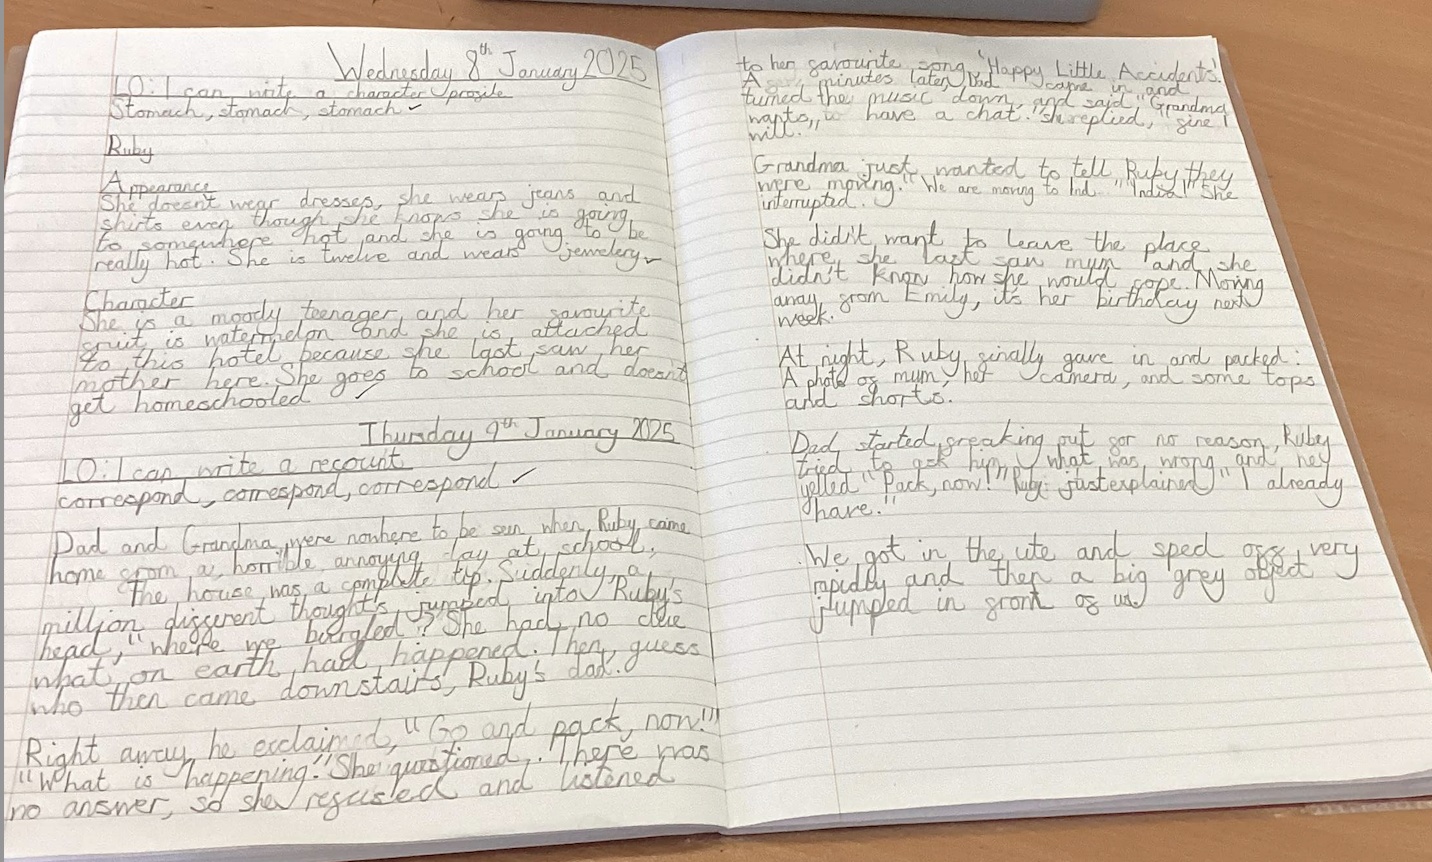 Wednesday 8th January 2025
LO: I can write a character profile
Stomach, stomach, stomach ✓
Ruby
Appearance
She doesnt wear dresses, she wears jeans and
shirts even though she knows she is going
to somewhere hot and she is going to be
really hot. She is twelve and wears jewelery
Character
She is a moody teenager, and her favourite
fruit is watermelon and she is attached
to this hotel because she last saw her
mother here. She goes to school and doesnt
get homeschooled
Thursday 9th January 2025
LO: I can write a recount
correspond, correspond, correspond ✓
Dad and Grandma were nowhere to be seen when Ruby came
home from a horrible annoying day at school,
the house was a complete tip. Suddenly, a
million different thoughts jumped into Ruby's
head, "where we burgled"? She had no clue
what on earth had happened. Then, guess
who then came downstairs, Ruby's dad.
Right away, he exclaimed, "Go and pack, now!"
"What is happening." She questioned. There was
no answer, so she refused and listened
to her favourite song 'Happy Little Accidents'.
A minutes later, Dad came in and
turned the music down, and said, "Grandma
wants to have a chat." she replied, "fine I
will."
Grandma just wanted to tell Ruby they
were moving. "We are moving to Ind... "India!" She
interrupted.
She did'it want to leave the place
where she last saw mum and she
didn't know how she would cope. Moving
away from Emily, it's her birthday next
week.
At night, Ruby finally gave in and packed:
A photo of mum, her camera, and some tops
and shorts.
Dad started freaking out for no reason, Ruby
tried to ask him, what was wrong and he
yelled "Pack, now!" Ruby just explained "I already
have."
We got in the ute and sped off, very
rapidly and then a big grey object
jumped in front of us.